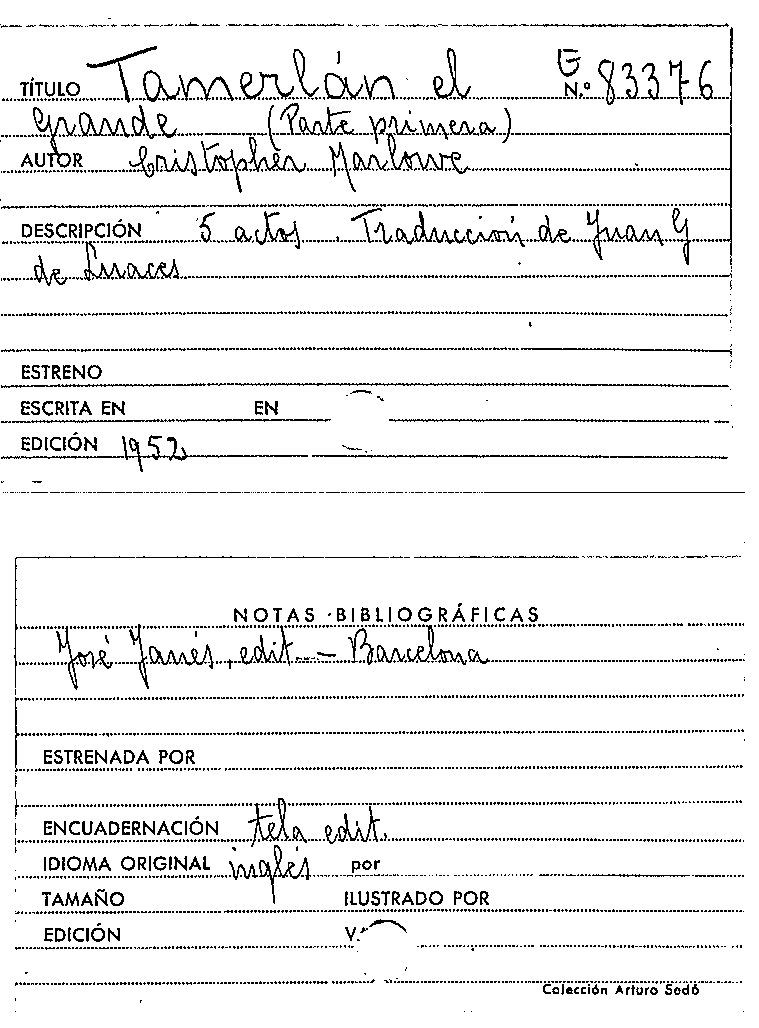 TÍTULO Tamerlán el E N.º 83376
grande (Parte primera)
AUTOR Cristopher Marlowe
DESCRIPCIÓN 5 actos. Traducción de Juan G
de Luaces
ESTRENO
ESCRITA EN EN
EDICIÓN 1952
NOTAS BIBLIOGRÁFICAS
José Janés, edit. — Barcelona
ESTRENADA POR
ENCUADERNACIÓN tela edit.
IDIOMA ORIGINAL inglés por
TAMAÑO ILUSTRADO POR
EDICIÓN V.
Colección Arturo Sedó